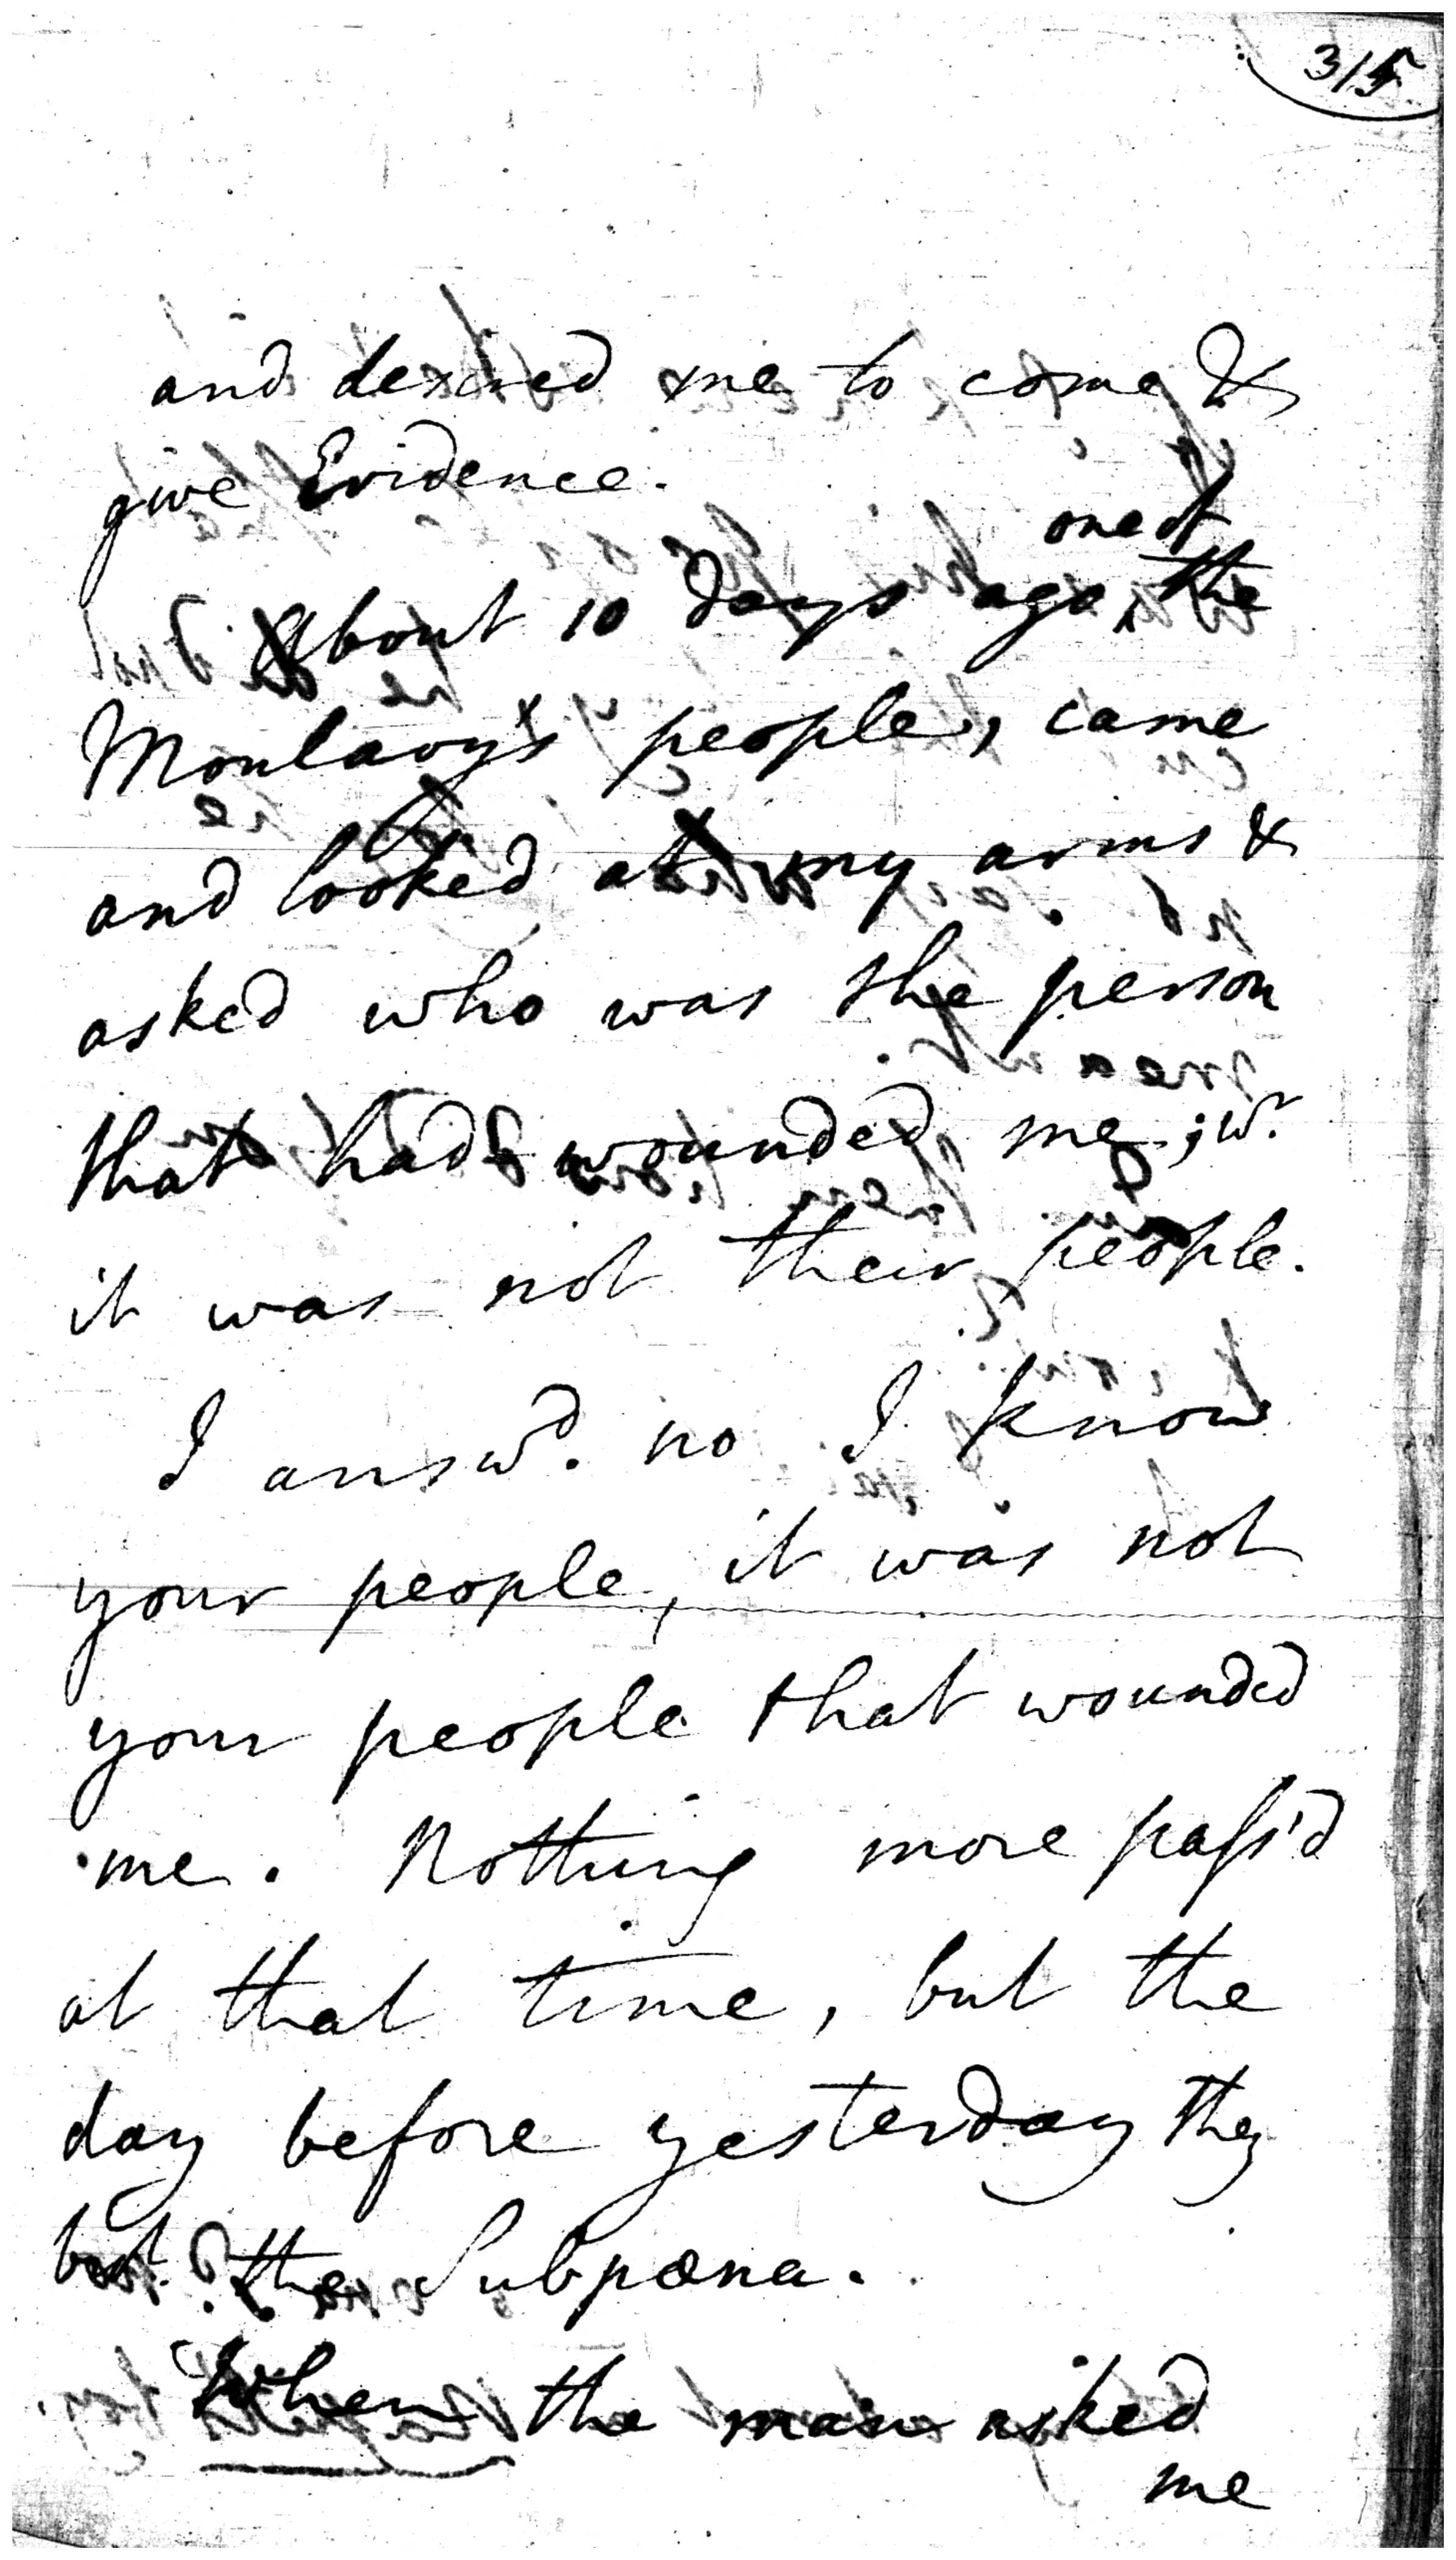 315
and desired me to come &
give Evidence.
one of
About 10 days ago, the
Moulavy's people, came
and looked at my arms &
asked who was the person
that had wounded me; wr.
it was not their people.
I answd. no I know
your people, it was not
your people that wounded
me. Nothing more pass'd
at that time, but the
day before yesterday they
brot. the Subpœna.
When the man asked
me